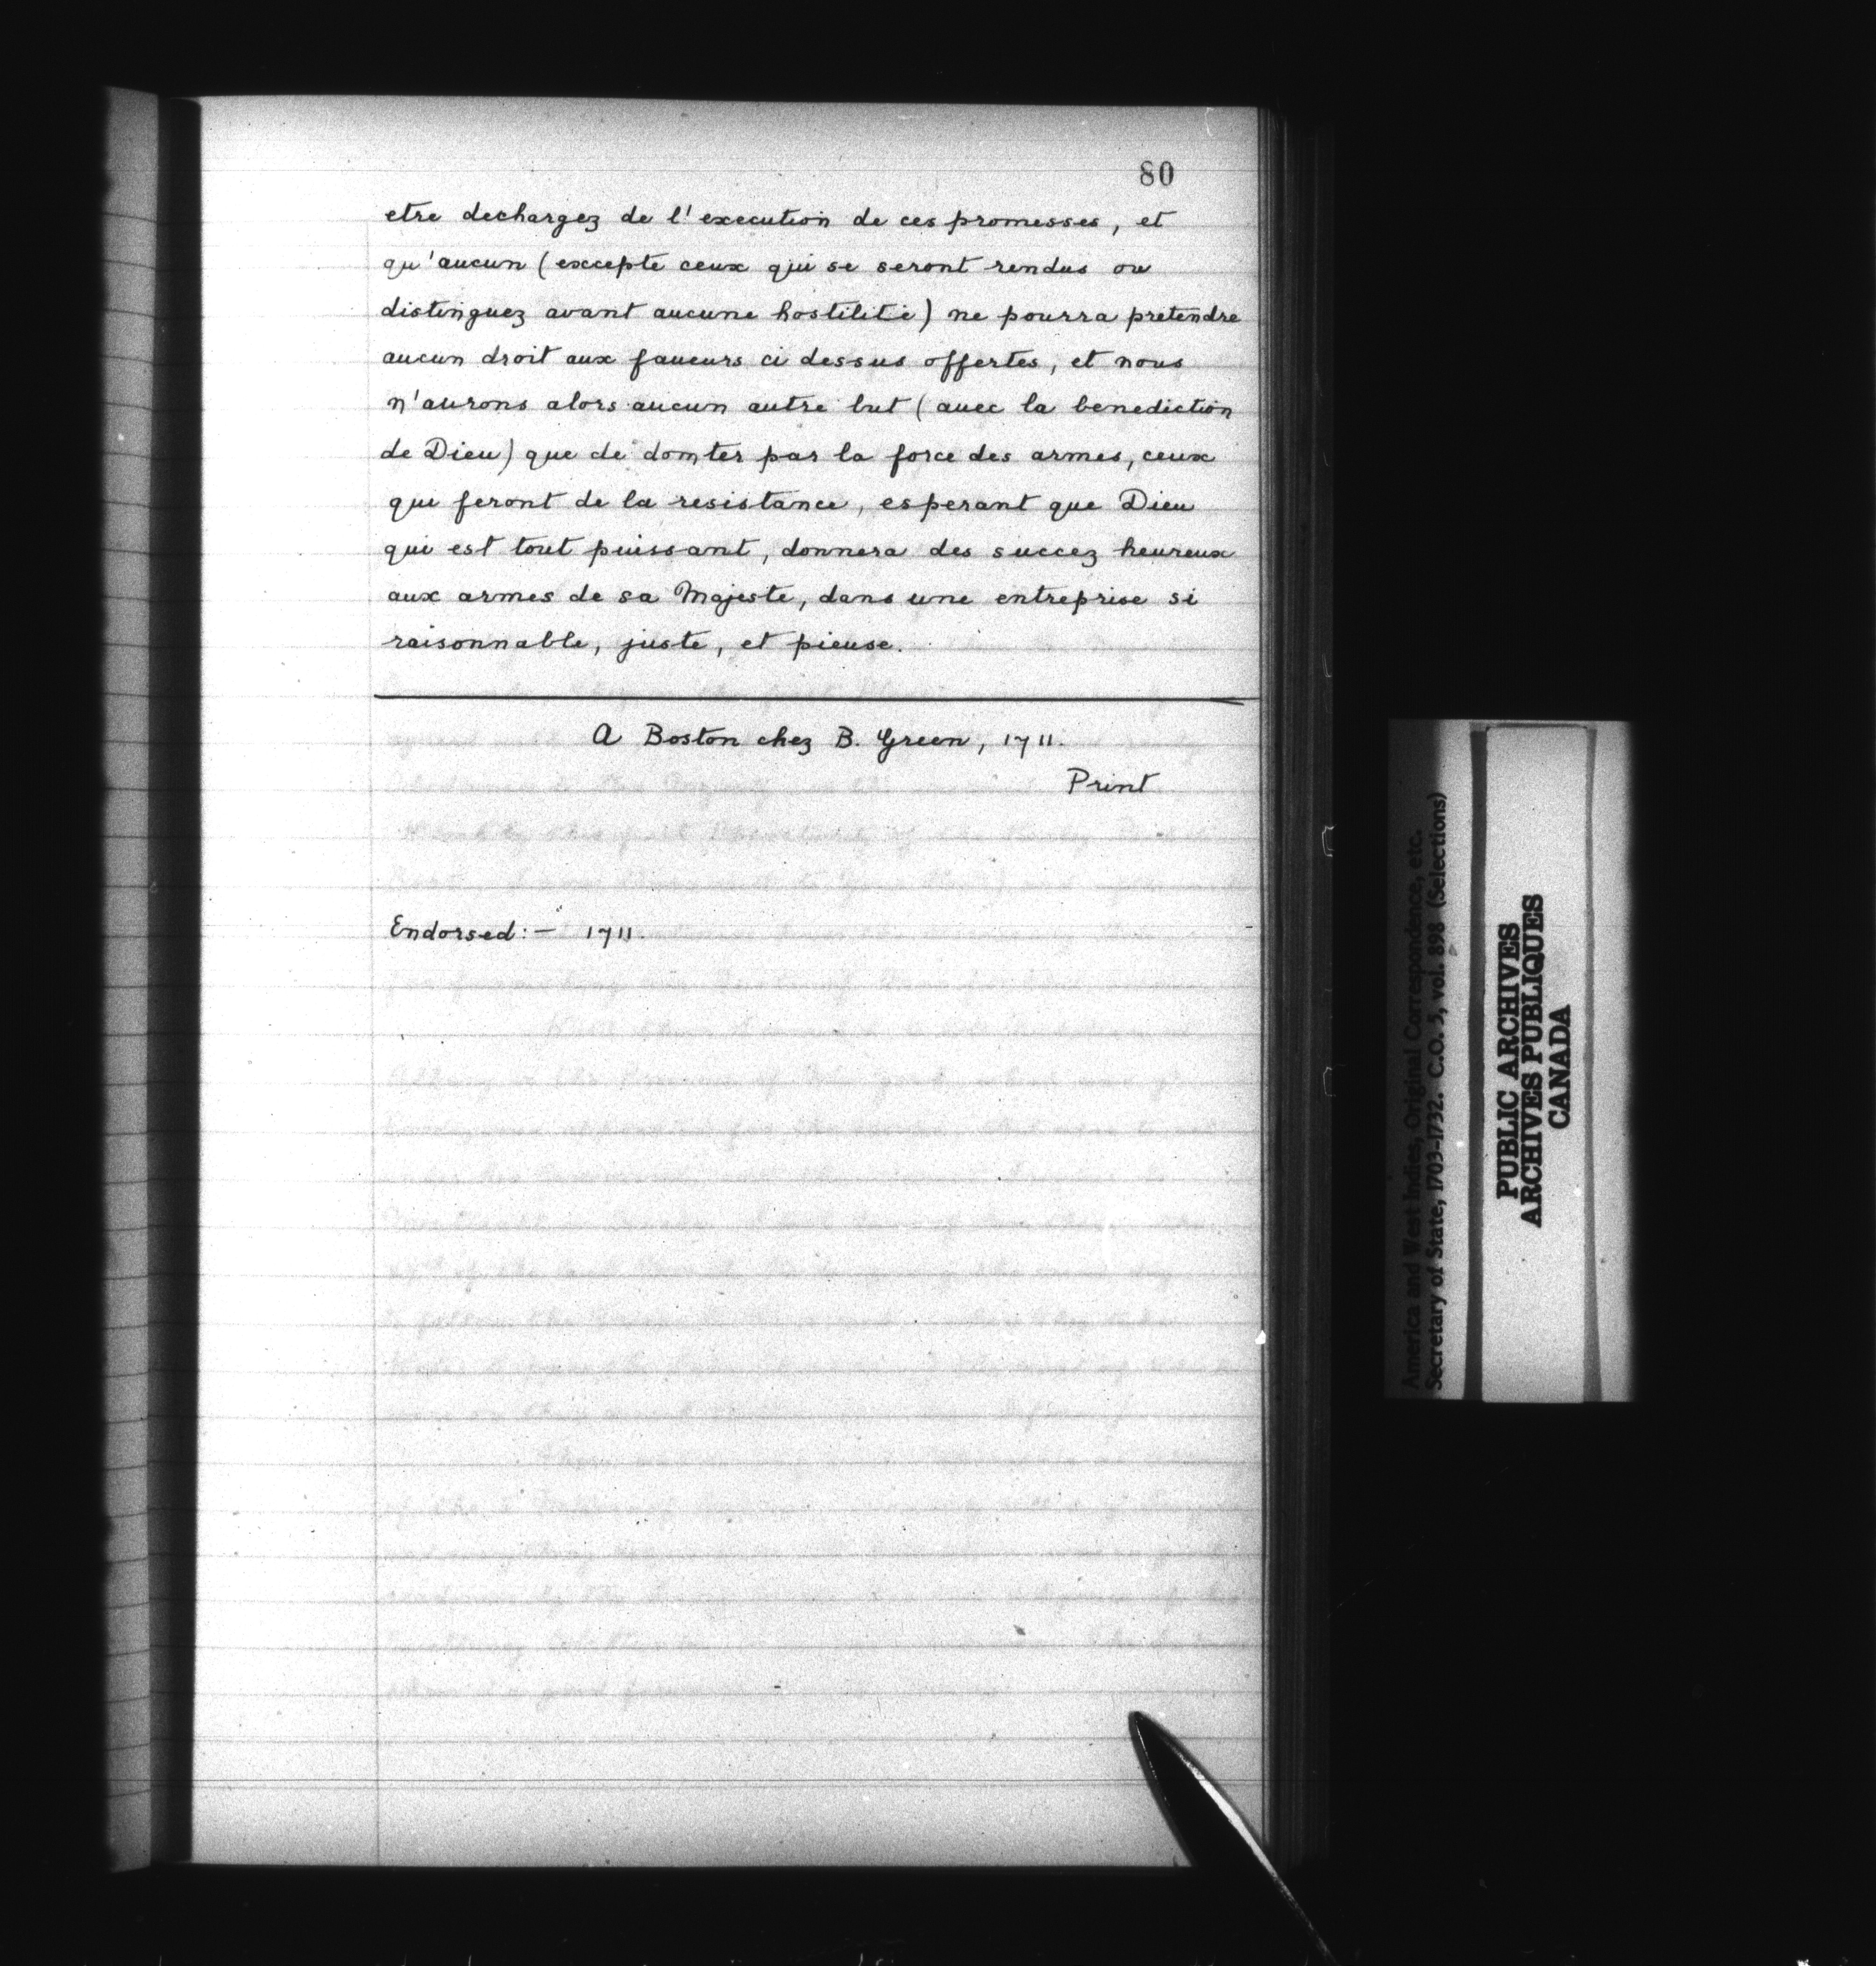 80
etre dechargez de l'execution de ces promesses, et
qu'aucun (excepte ceux qui se seront rendus ou
distinguez avant aucune hostilité) ne pourra pretendre
aucun droit aux faueurs ci dessus offertes, et nous
n'aurons alors aucun autre but (auec la benediction
de Dieu) que de domter par la force des armes, ceux
qui feront de la resistance, esperant que Dieu
qui est tout puissant, donnera des succez heureux
aux armes de sa Majeste, dans une entreprise si
raisonnable, juste, et pieuse.
A Boston chez B. Green, 1711.
Print
Endorsed:— 1711.
America and West Indies, Original Correspondence, etc.
Secretary of State, 1703-1732. C.O. 5, vol. 898 (Selections)
PUBLIC ARCHIVES
ARCHIVES PUBLIQUES
CANADA